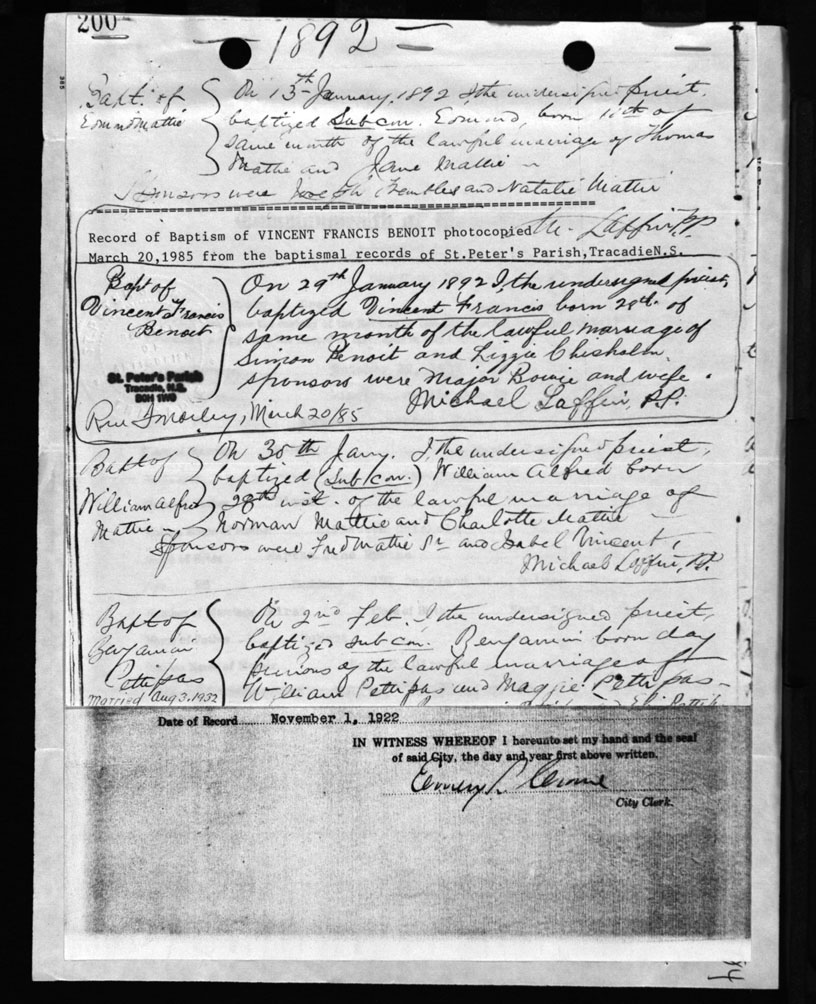 200
1892
Bapt. of
Edmond Mattie
On 13th January, 1892 I, the undersigned priest,
baptized Sub con. Edmond, born 11th of
same month of the lawful marriage of Thomas
Mattie and Jane Mattie
Sponsors were Joseph Trembles and Natalie Mattie
M. Laffin, P.P.
Record of Baptism of VINCENT FRANCIS BENOIT photocopied
March 20,1985 from the baptismal records of St.Peter's Parish,TracadieN.S.
Bapt of
Vincent Francis
Benoit
On 29th January 1892 I, the undersigned priest,
baptized Vincent Francis born 28th of
same month of the lawful marriage of
Simon Benoit and Lizzie Chisholm.
sponsors were Major Bowie and wife.
Michael Laffin, P.P.
St. Peter's Parish
Tracadie, N.S.
B0H 1W0
March 20/85
Bapt of
William Alfred
Mattie
On 30th Jany. I, the undersigned priest,
baptized (Sub/con.) William Alfred born
28th inst. of the lawful marriage of
Norman Mattie and Charlotte Mattie
Sponsors were Fred Mattie Sr and Isabel Vincent,
Michael Laffin, P.P.
Bapt of
Benjamin
Pettipas
Married Aug 3. 1932
On 2nd Feb. I the undersigned priest,
baptized sub con. Benjamin born day
previous of the lawful marriage of
William Pettipas and Maggie Pettipas
Date of Record November 1, 1922
IN WITNESS WHEREOF I hereunto set my hand and the seal
of said City, the day and year first above written.
City Clerk.